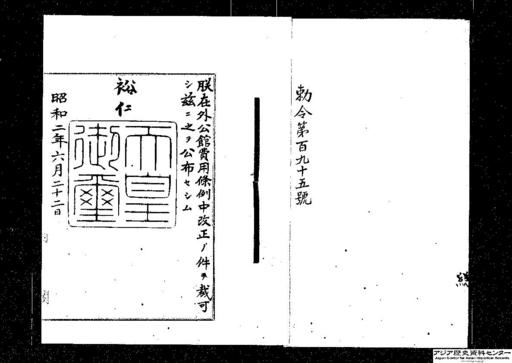 勅令第百九十五號
朕在外公館費用條例中改正ノ件ヲ裁可
シ茲ニ之ヲ公布セシム
裕仁
天皇
御璽
昭和二年六月二十二日
アジア歴史資料センター
Japan Center for Asian Historical Records